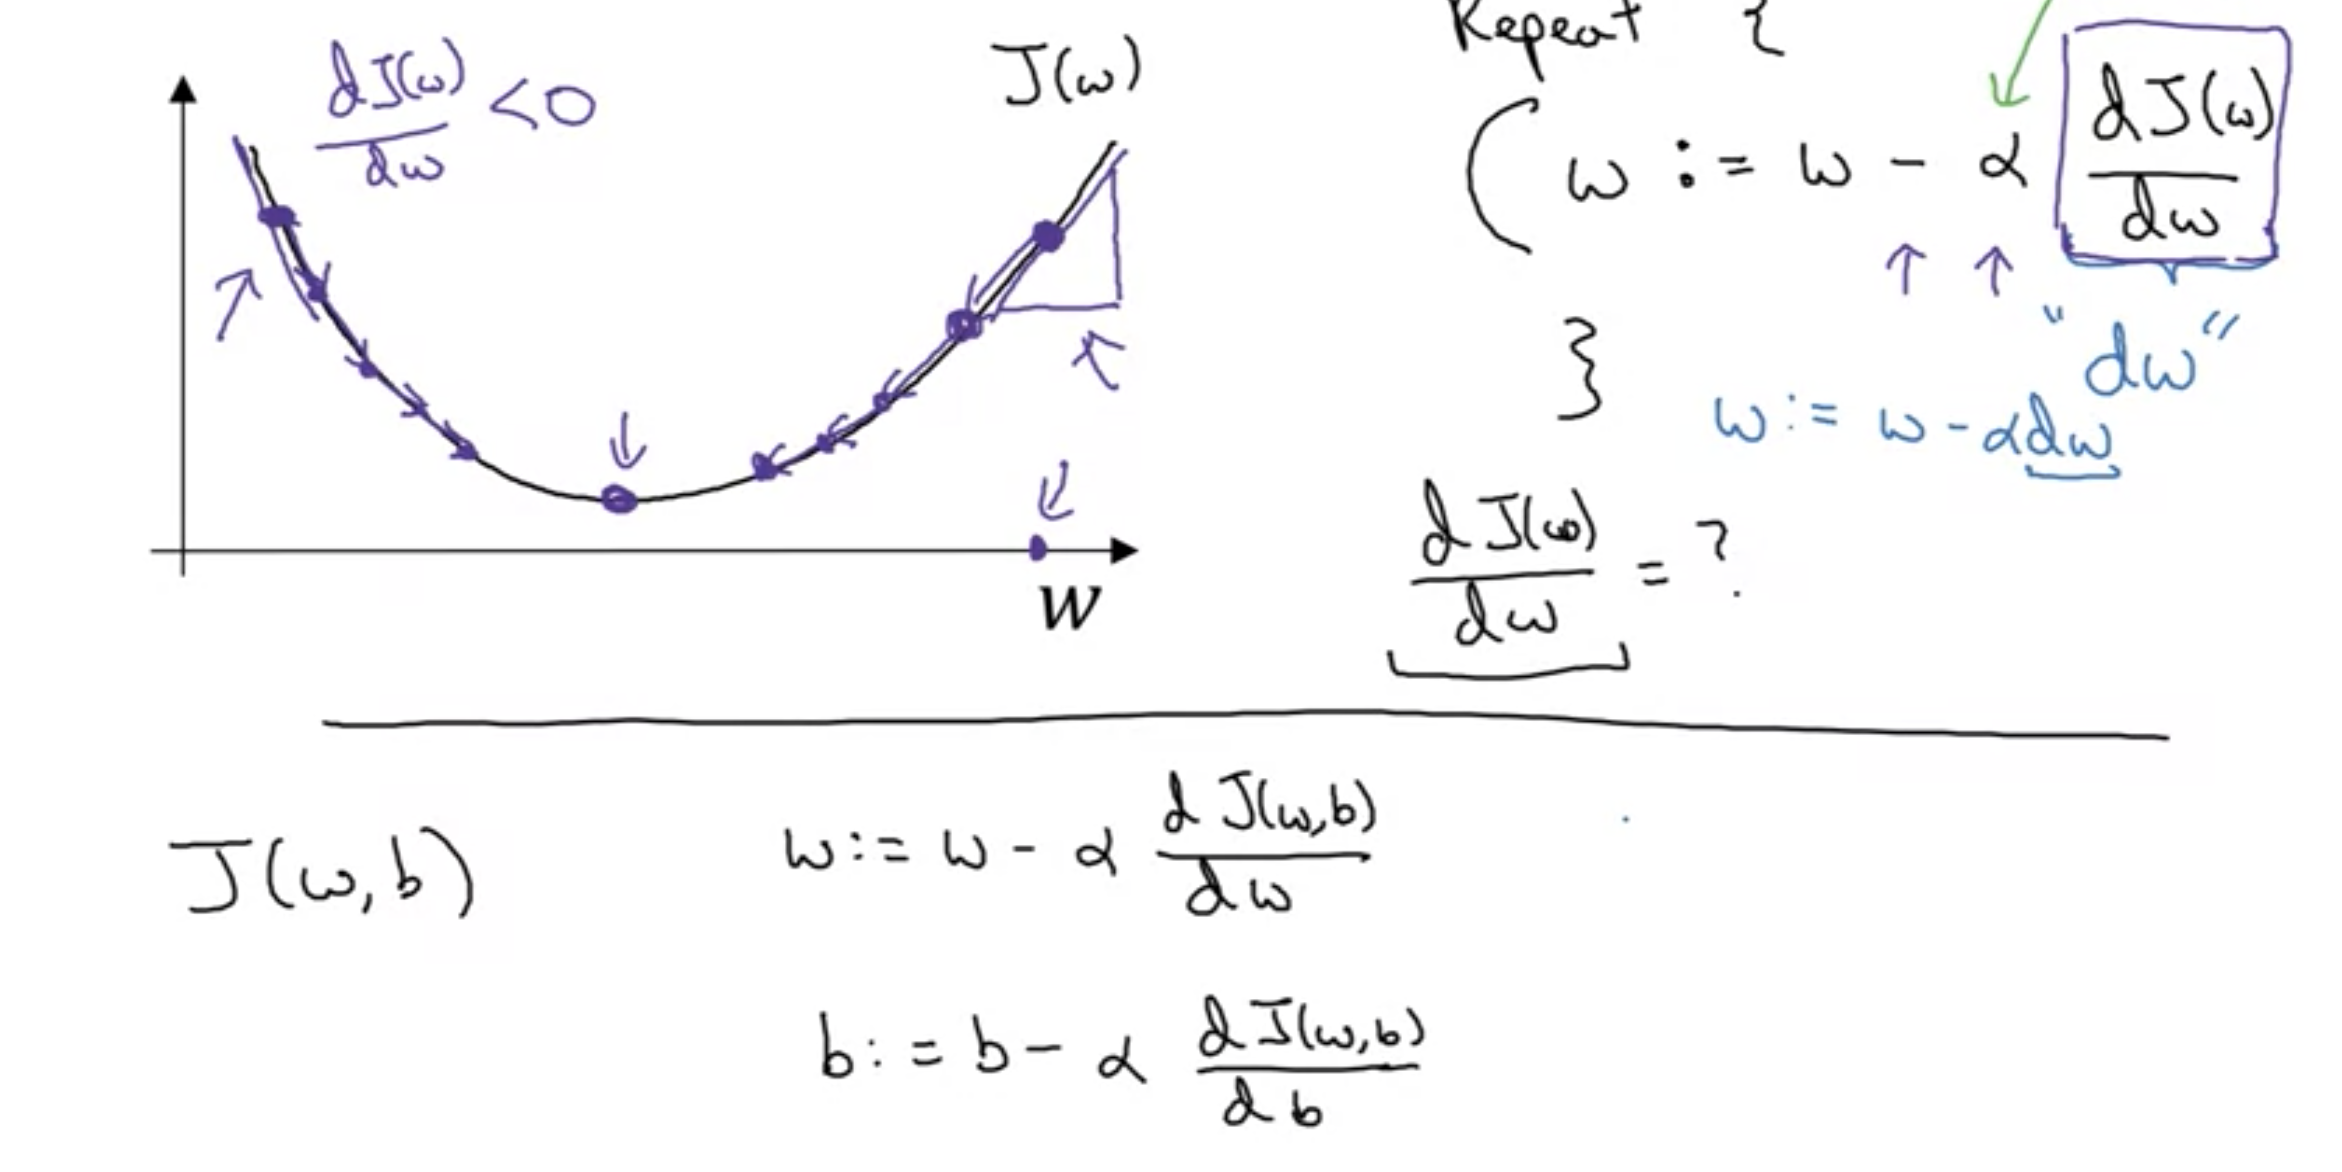 dJ(w)/dw <0
J(w)
w
Repeat {
w := w - α dJ(w)/dw
"dw"
}
w := w - αdw
dJ(w)/dw = ?
J(w,b)
w := w - α dJ(w,b)/dw
b := b - α dJ(w,b)/db